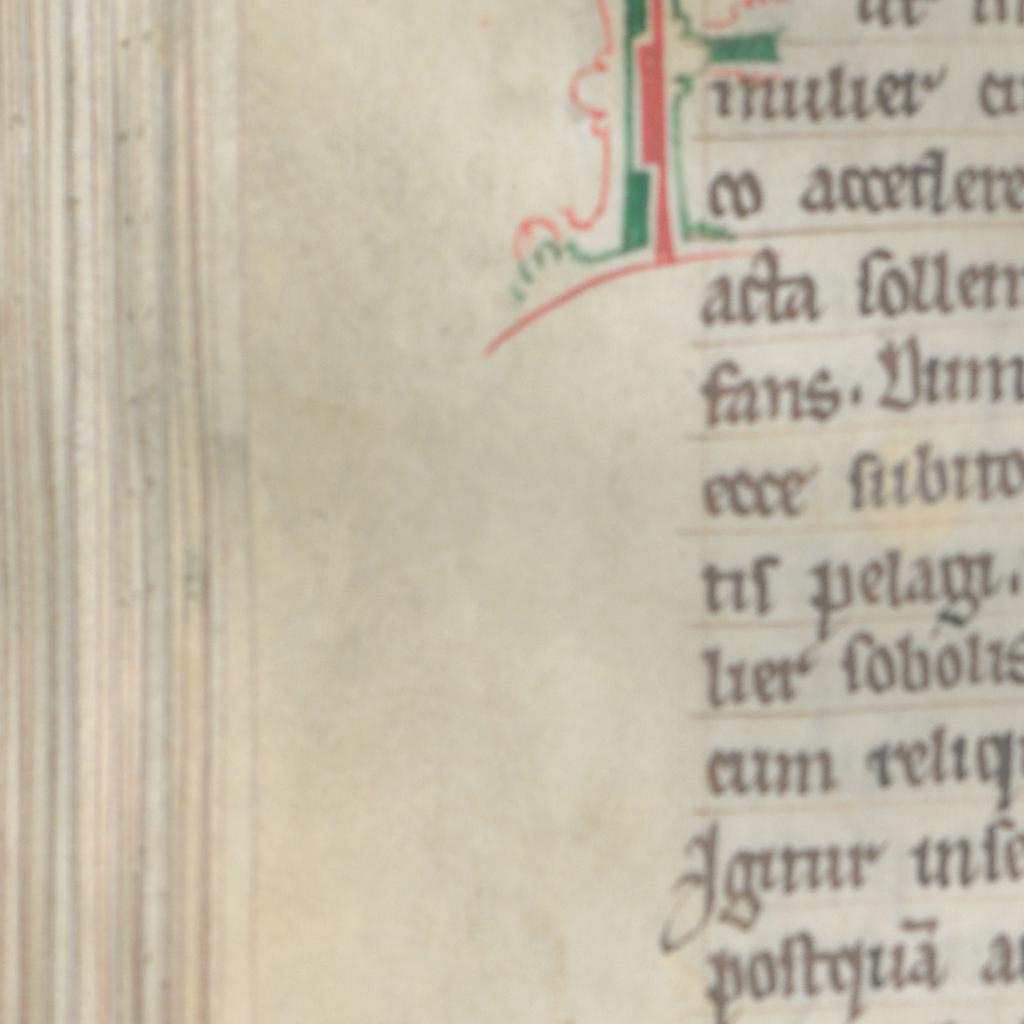 mulier
eo accessere
acta sollem
fans. Dum
ecce subito
tis pelagi.
lier sobolis
cum reliqu
Igitur inse
postquā